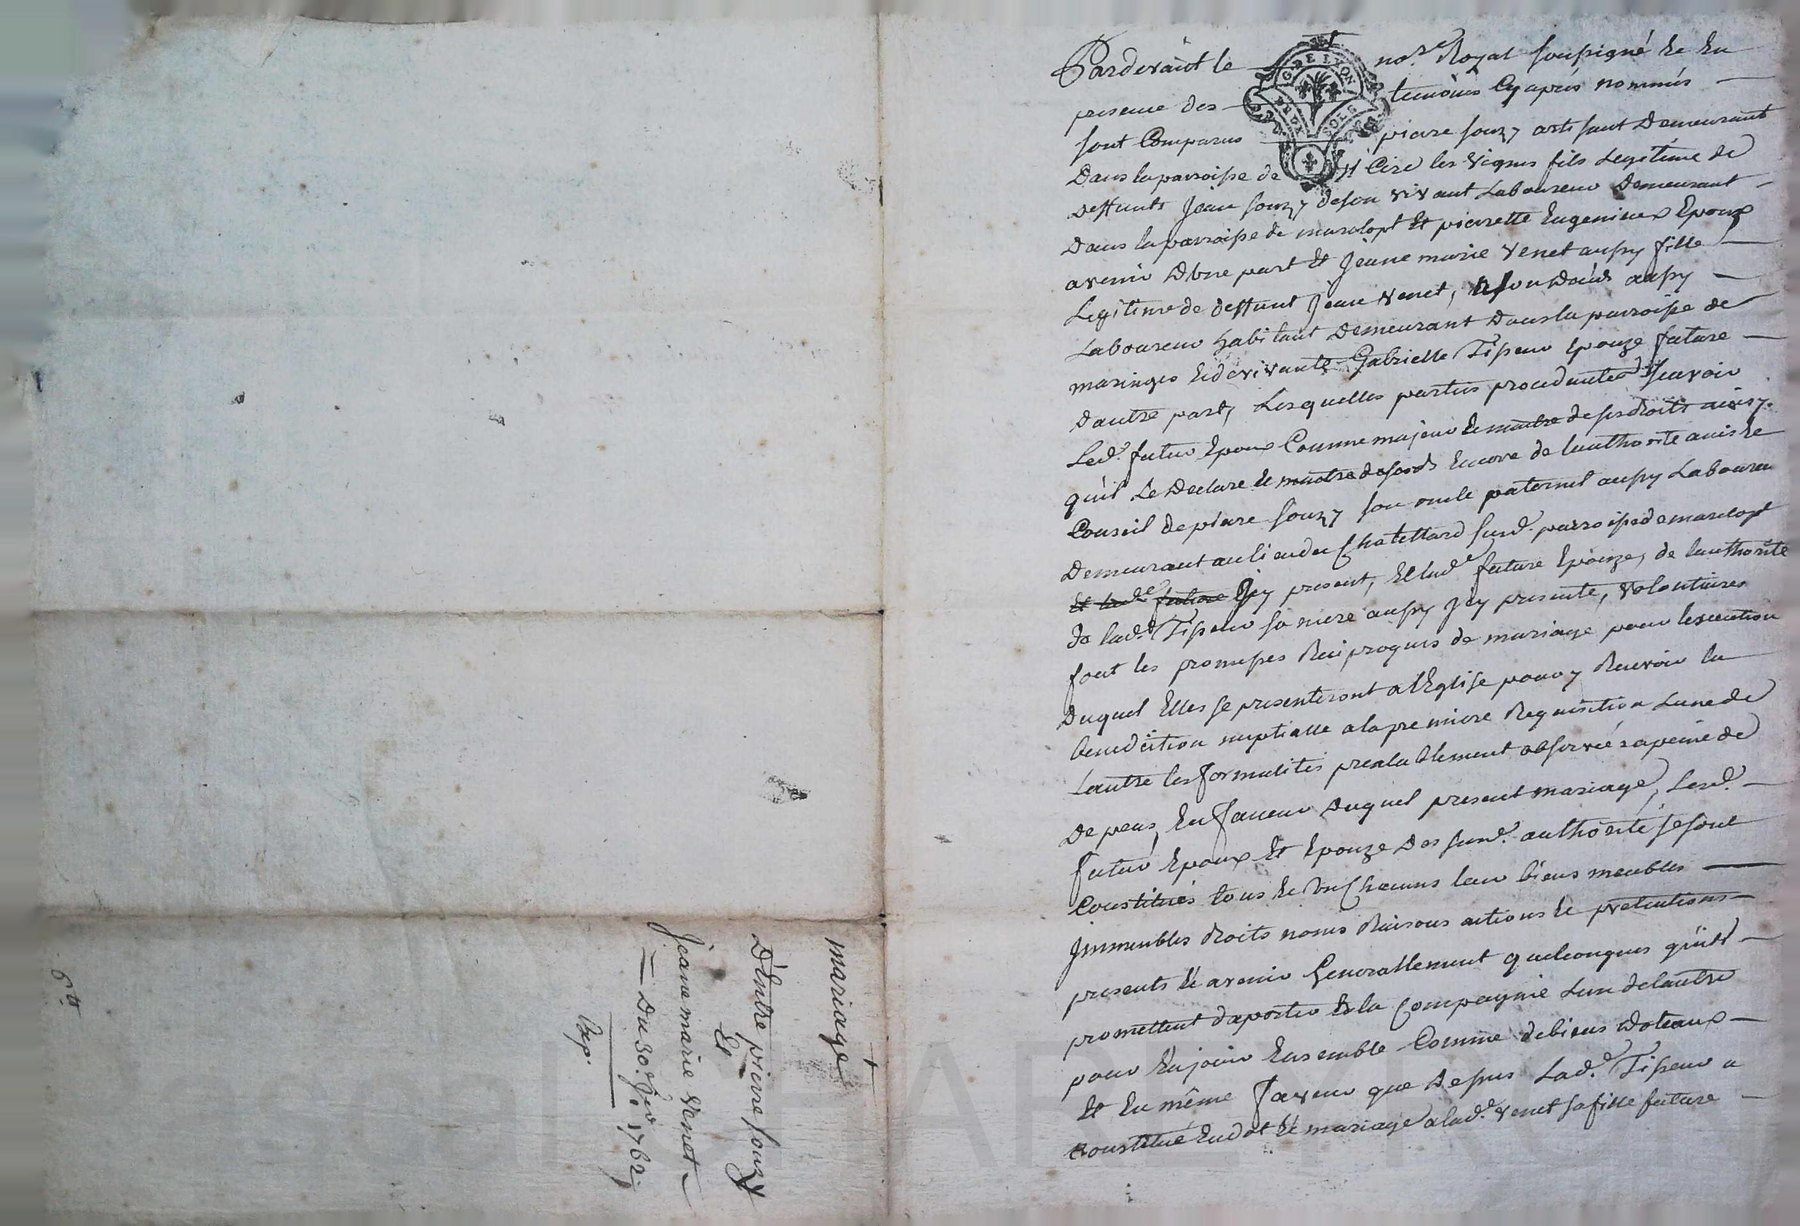 Pardevant le no.re Royal soussigné Et En
presence des temoins Cy après nommés
sont Comparus piarre souzy artisant Demeurant
Dans la parroisse de st Cire les Vignes fils Legitime de
deffunts Jean souzy de son vivant Laboureur Demeurant
Dans la parroisse de marclopt Et pierrette Eugenieux Epoux
avenir D'une part Et Jeane marie Venet aussy fille
Legitime de deffunt Jean Venet, aussy
Laboureur habitant Demeurant Dans la parroisse de
maringes Et de vivante Gabrielle Tisseur Epouze future
D'autre part, Lesquelles parties procedantes sçavoir
Led. futur Epoux Comme majeur Et maitre de ses droits ainsy
qu'il Le Declare Et Encore de l'authorité avis Et
Conseil de piarre souzy son oncle paternel aussy Laboureur
Demeurant au lieu du Chatellard susd. parroisse de marclopt
Et lad.e future Jcy present, Et lad.e future Epouze, de l'authorité
de lad.e Tisseur sa mere aussy Jcy presente, volontaires
font les promesses Reciproques de mariage pour l'execution
Duquel Elles se presenteront a l'Eglise pour y Recevoir la
benediction nuptialle a la premiere Requisition L'une de
L'autre les formalités prealablement observées a peine de
Depens, En faveur Duquel present mariage, Lesd.
futur Epoux Et Epouze Des susd. authorité se sont
Constitués tous Et Un Chacuns leur biens meubles
Jmmeubles droits noms Raisons actions Et pretentions
presents Et avenir Generallement quelconques qu'ils
promettent d'aporter En la Compagnie L'un de l'autre
pour En jouir Ensemble Comme de biens dotaux
Et En même faveur que Dessus Lad.e Tisseur a
Constitué En dot Et mariage a lad.e Venet sa fille future
mariage
D'Entre pierre souzy
Et
Jeane marie Venet
Du 30. 1762
Exp.
G. DE LYON